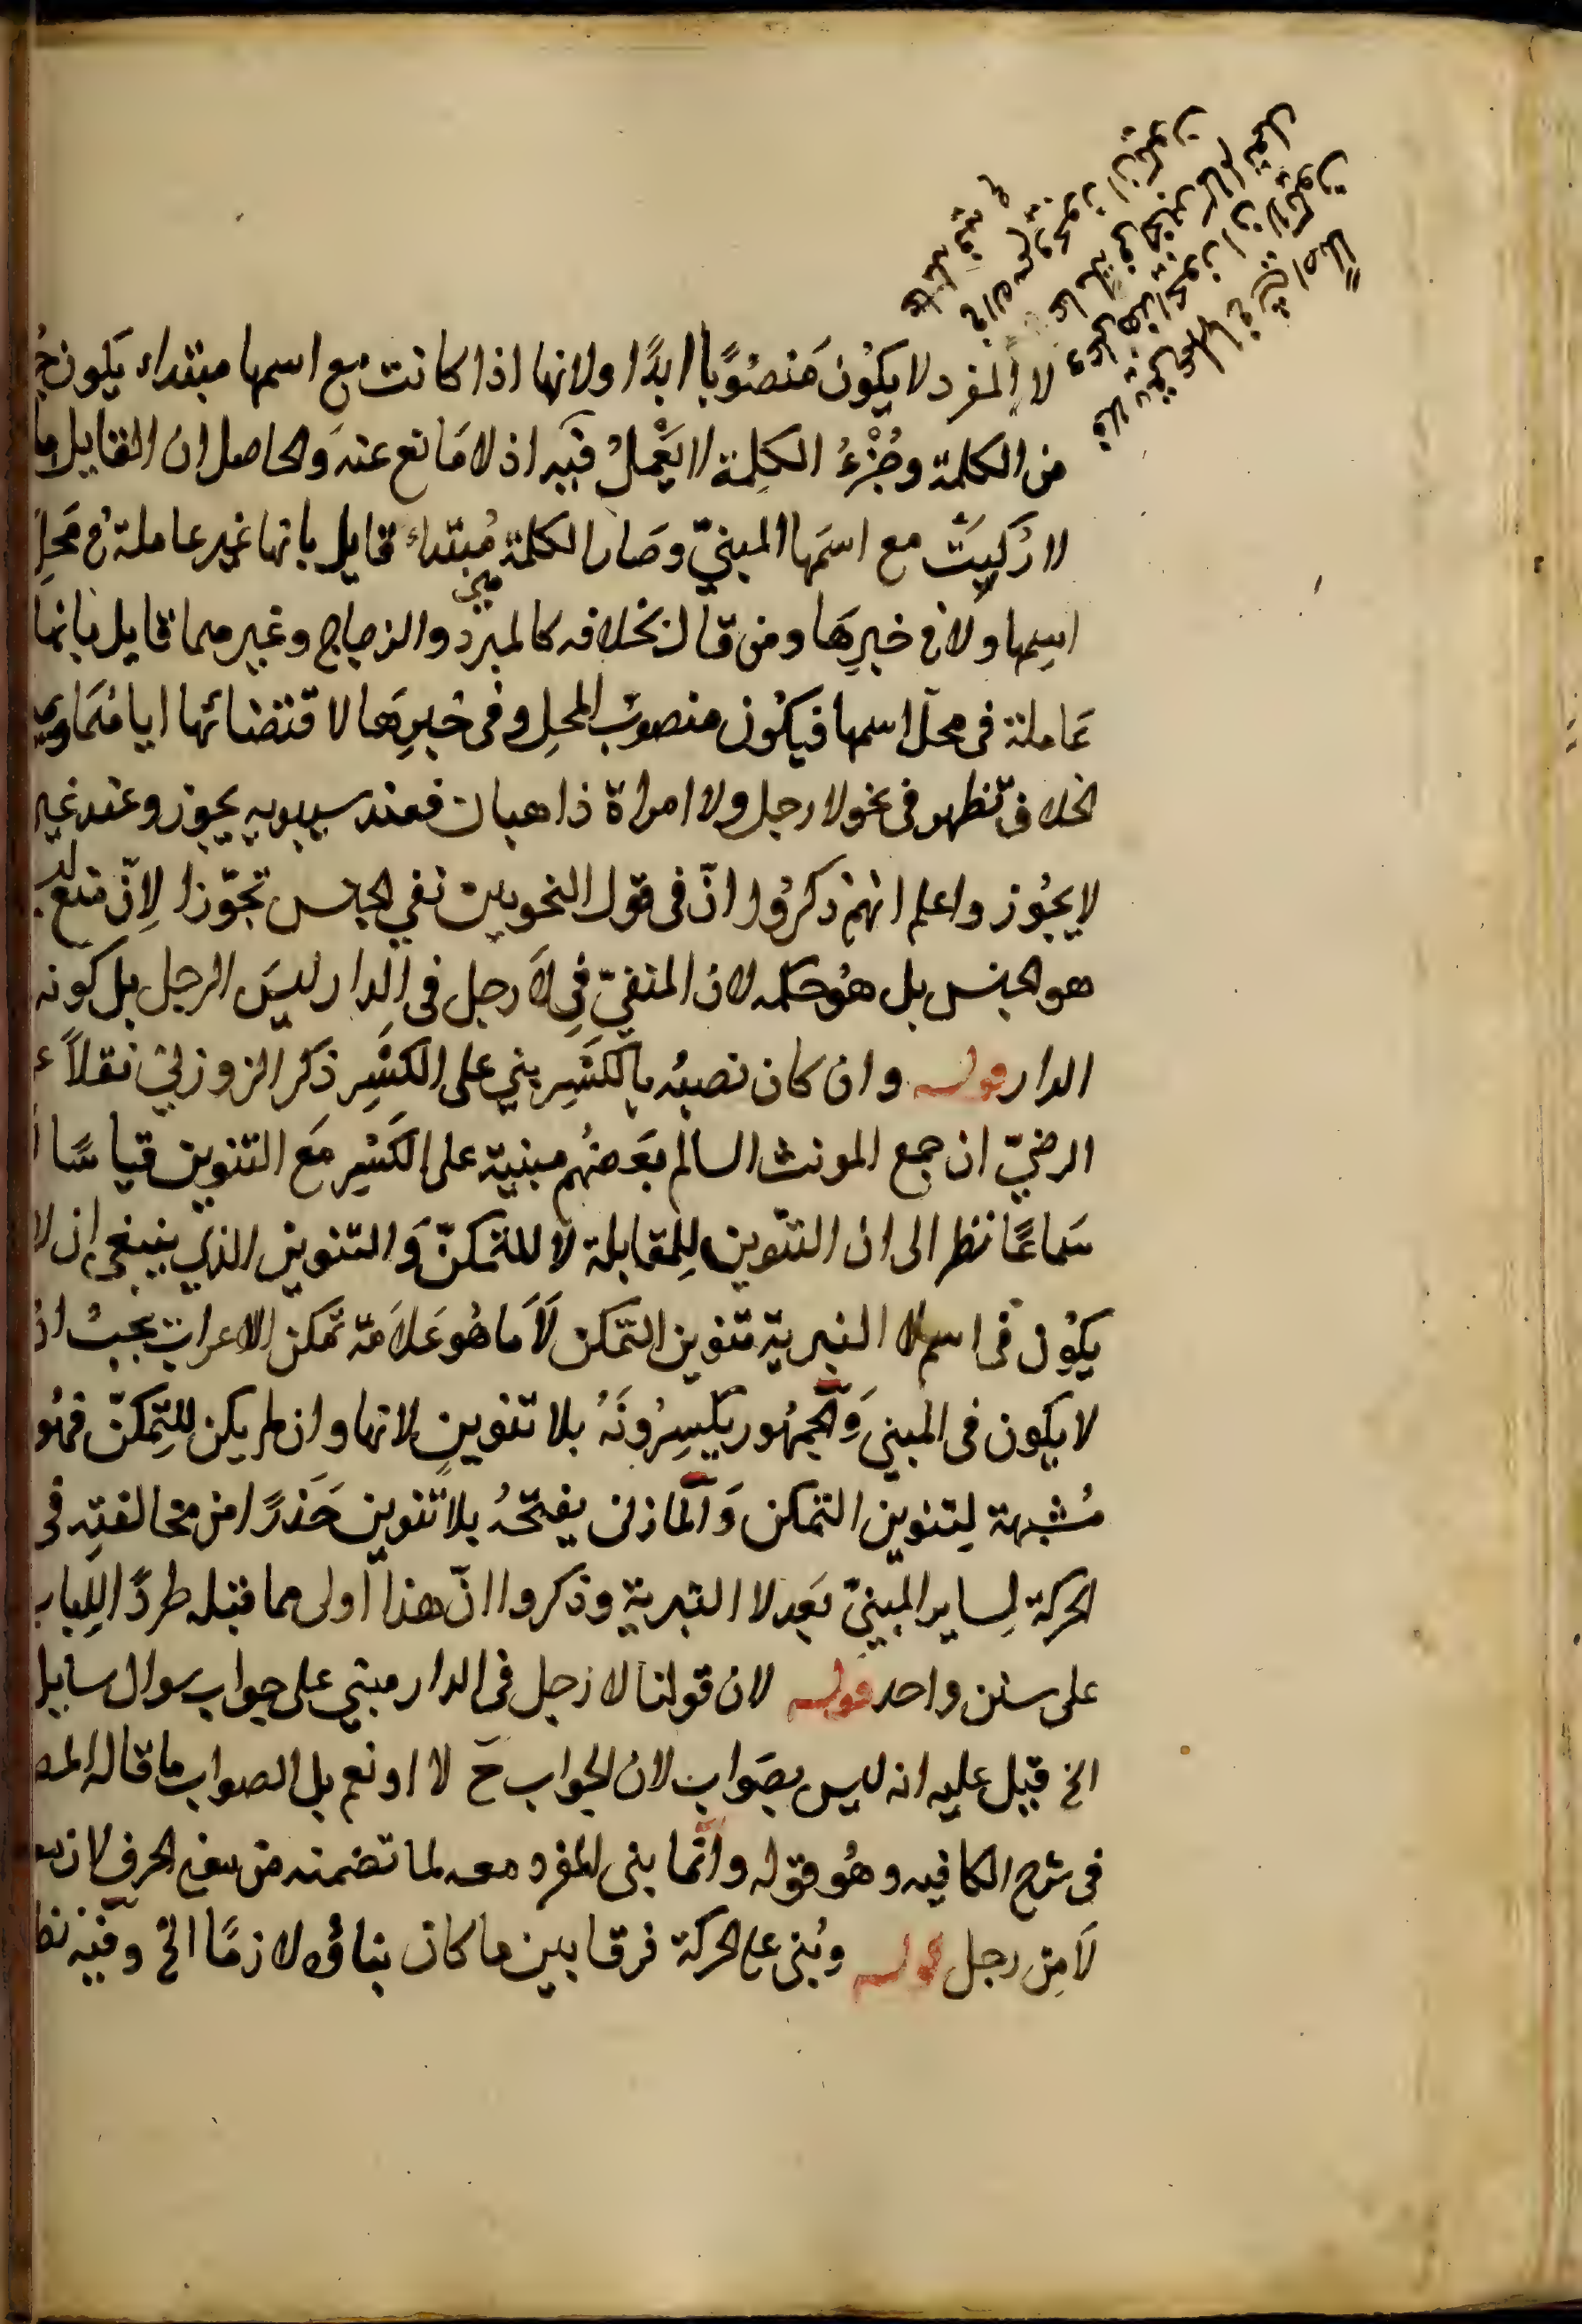 لا المفرد لا يكُون مَنصُوبًا ابدًا ولانها اذا كانت مع اسمها مبتداء يكون
من الكلمة وجُزْءُ الكلِمة لا يَعْملُ فيَه اذ لا مَانع عنهَ وَالحاصل ان القايل
لا رُكِّبَتْ مع اسمَها المبنيّ وصَار الكلمة مُبتداء قايل بانها غير عاملة في مَحلِ
اسِمها ولا في خبرِهَا ومن قال بخلافه كالمبرّد والزجاج وغيرهما قايل بانها
عَاملة فى محلّ اسمها فيكُون منصوبَ المحلِ وفى خبرِهَا لاقتضائها اياهُمَا
الخلاف تظهر فى نحو لا رجل ولا امراة ذاهبان فعند سيبويه يجوز وعند غير
لا يجُوز واعلم انهمْ ذكرُوا انّ فى قول النحويين نفي الجنس تجوّزا لِانّ
هو الجنس بل هُو حكمه لان المنفيّ فِي لَا رجل فى الدار ليسَ الرجل بل كونه
الدار قوله وان كان نصبُه بالكسْرِ بني على الكسْرِ ذكر الزوزني نقلاً
الرضيّ ان جمع المونث السالم بعَضهُم مبنية على الكَسْرِ مَع التنوين قياسًا
سَماعًا نظر الى ان التنوين لِلمقابلة لا للتمكنّ وَالتنوين الذي ينبغى ان لا
يكوُن فى اسم لا التبرية تنوين التمكن لَاَ مَا هُو عَلامَة تمكن الاعراب يجبُ ان
لا يكون فى المبني وَالجمهُور يكسِرُونَهُ بلا تنوينٍ لانها وان لم يكن للتِمكنّ فهُو
مُشبهة لِتنوين التمكن وَالمازنى يفتحُه بلا تنوين حَذرًا من مخالفتِه فى
الحركة لِساير المبنيّ بَعد لا التبرية وذكروا انّ هذا اولى مما قبله طردًا للِباب
على سنن واحد قوله لان قولنا لا رجل فى الدار مبني على جواب سوال سايل
الخ قيل عليه انه ليس بصَواب لان الجواب حَ لا او نعم بل الصواب ما قاله المص
فى شرح الكافيه وهُو قوله وانّما بنى المفرد معه لما تضمنه من معنى الحرف لان
لَا مِن رجل قوله وبُنى على الحركة فرقا بين ما كان بناؤه لازمًا الخ وفيْه